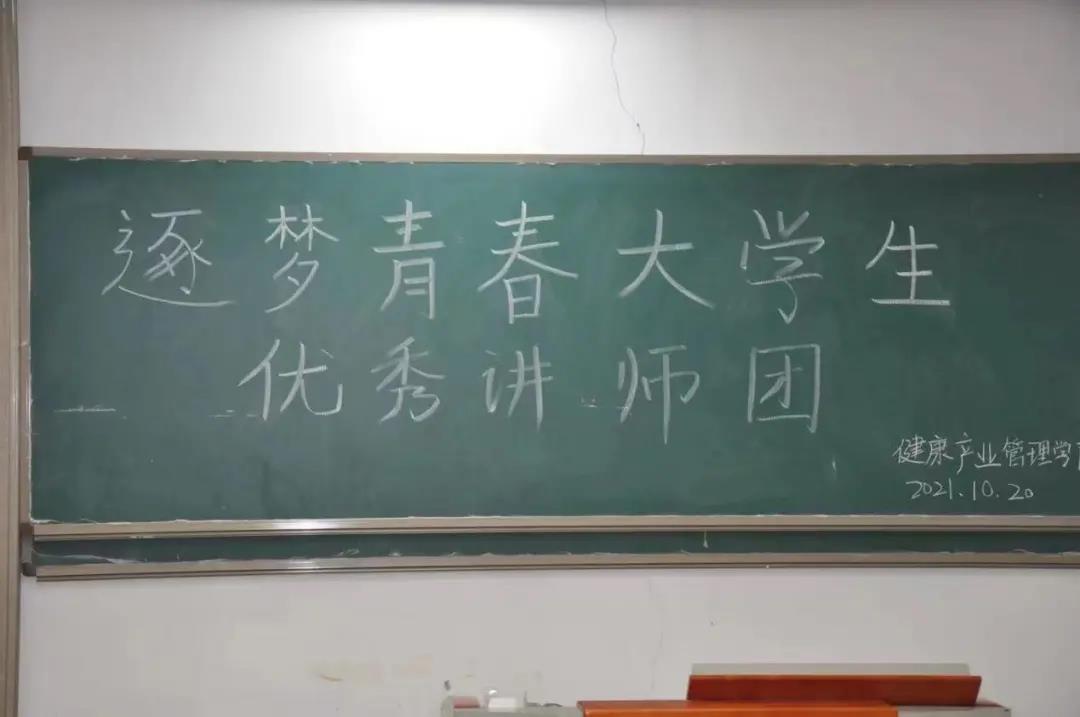 逐梦青春大学生
优秀讲师团
健康产业管理学
2021.10.20